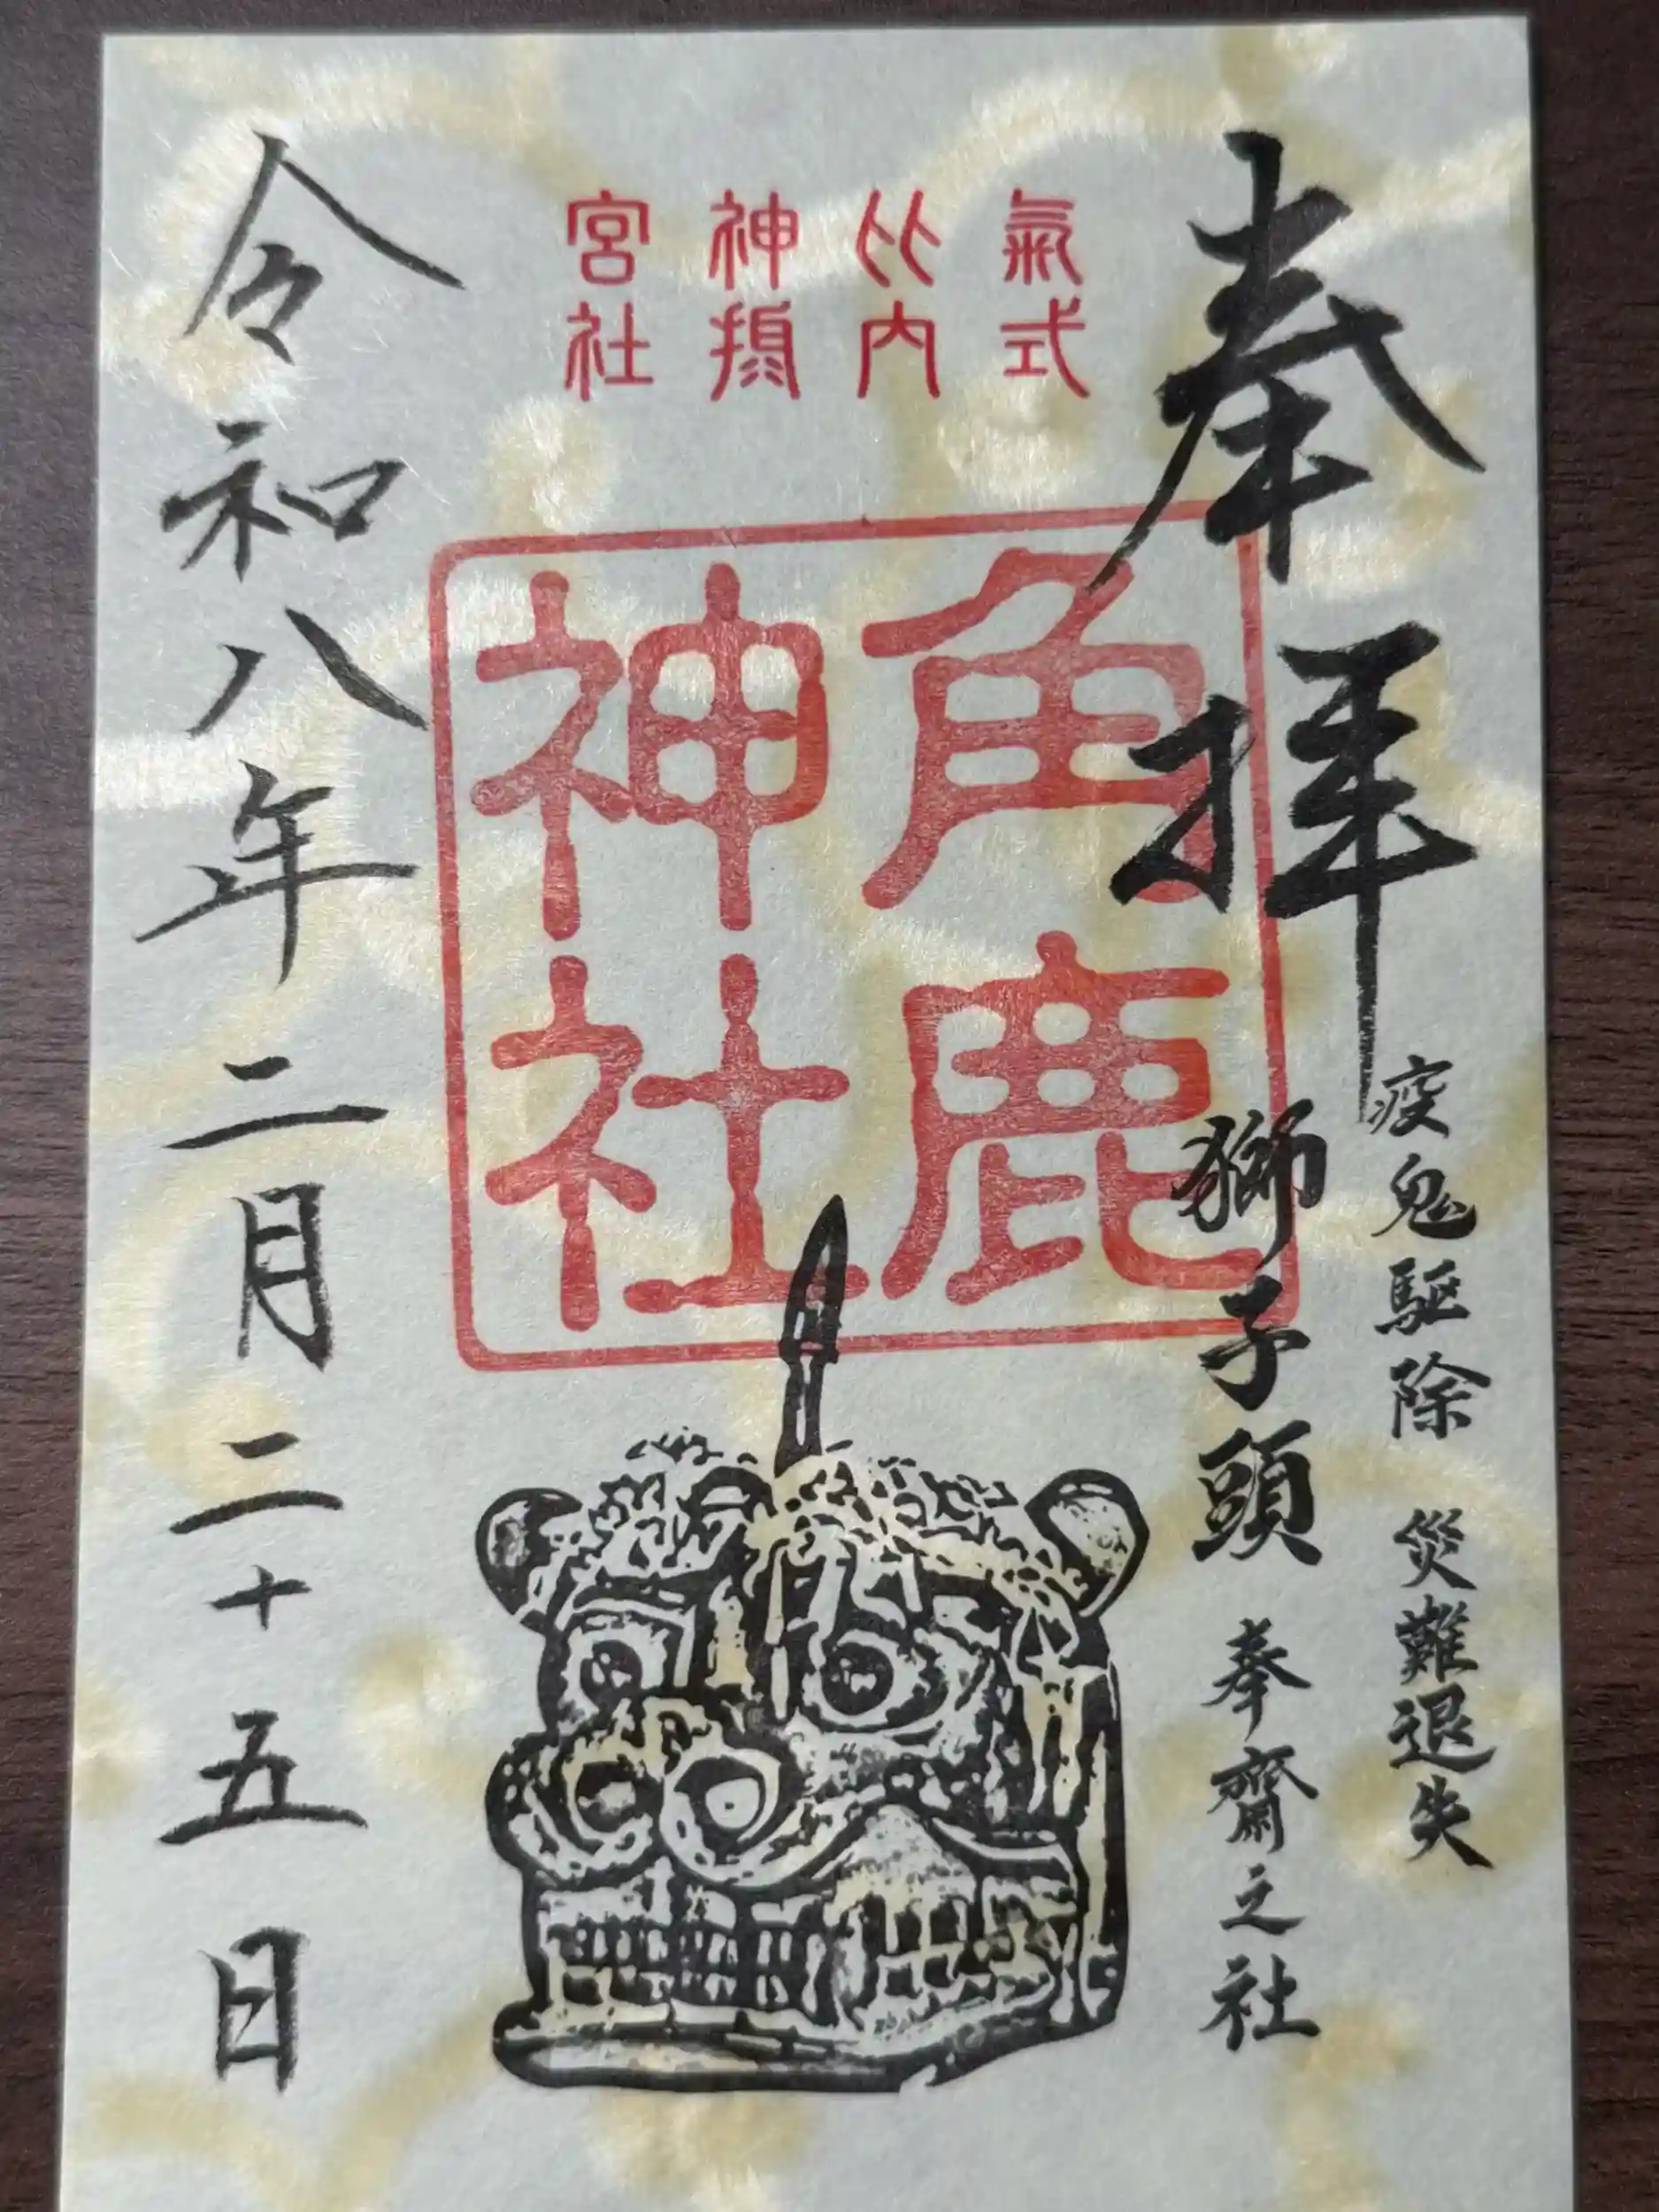 奉拝
疫鬼駆除　災難退失
獅子頭　奉齋之社
氣比神宮
式内摂社
角鹿
神社
令和八年二月二十五日